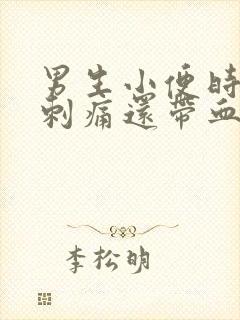 男生小便時
刺痛還帶血
李松明